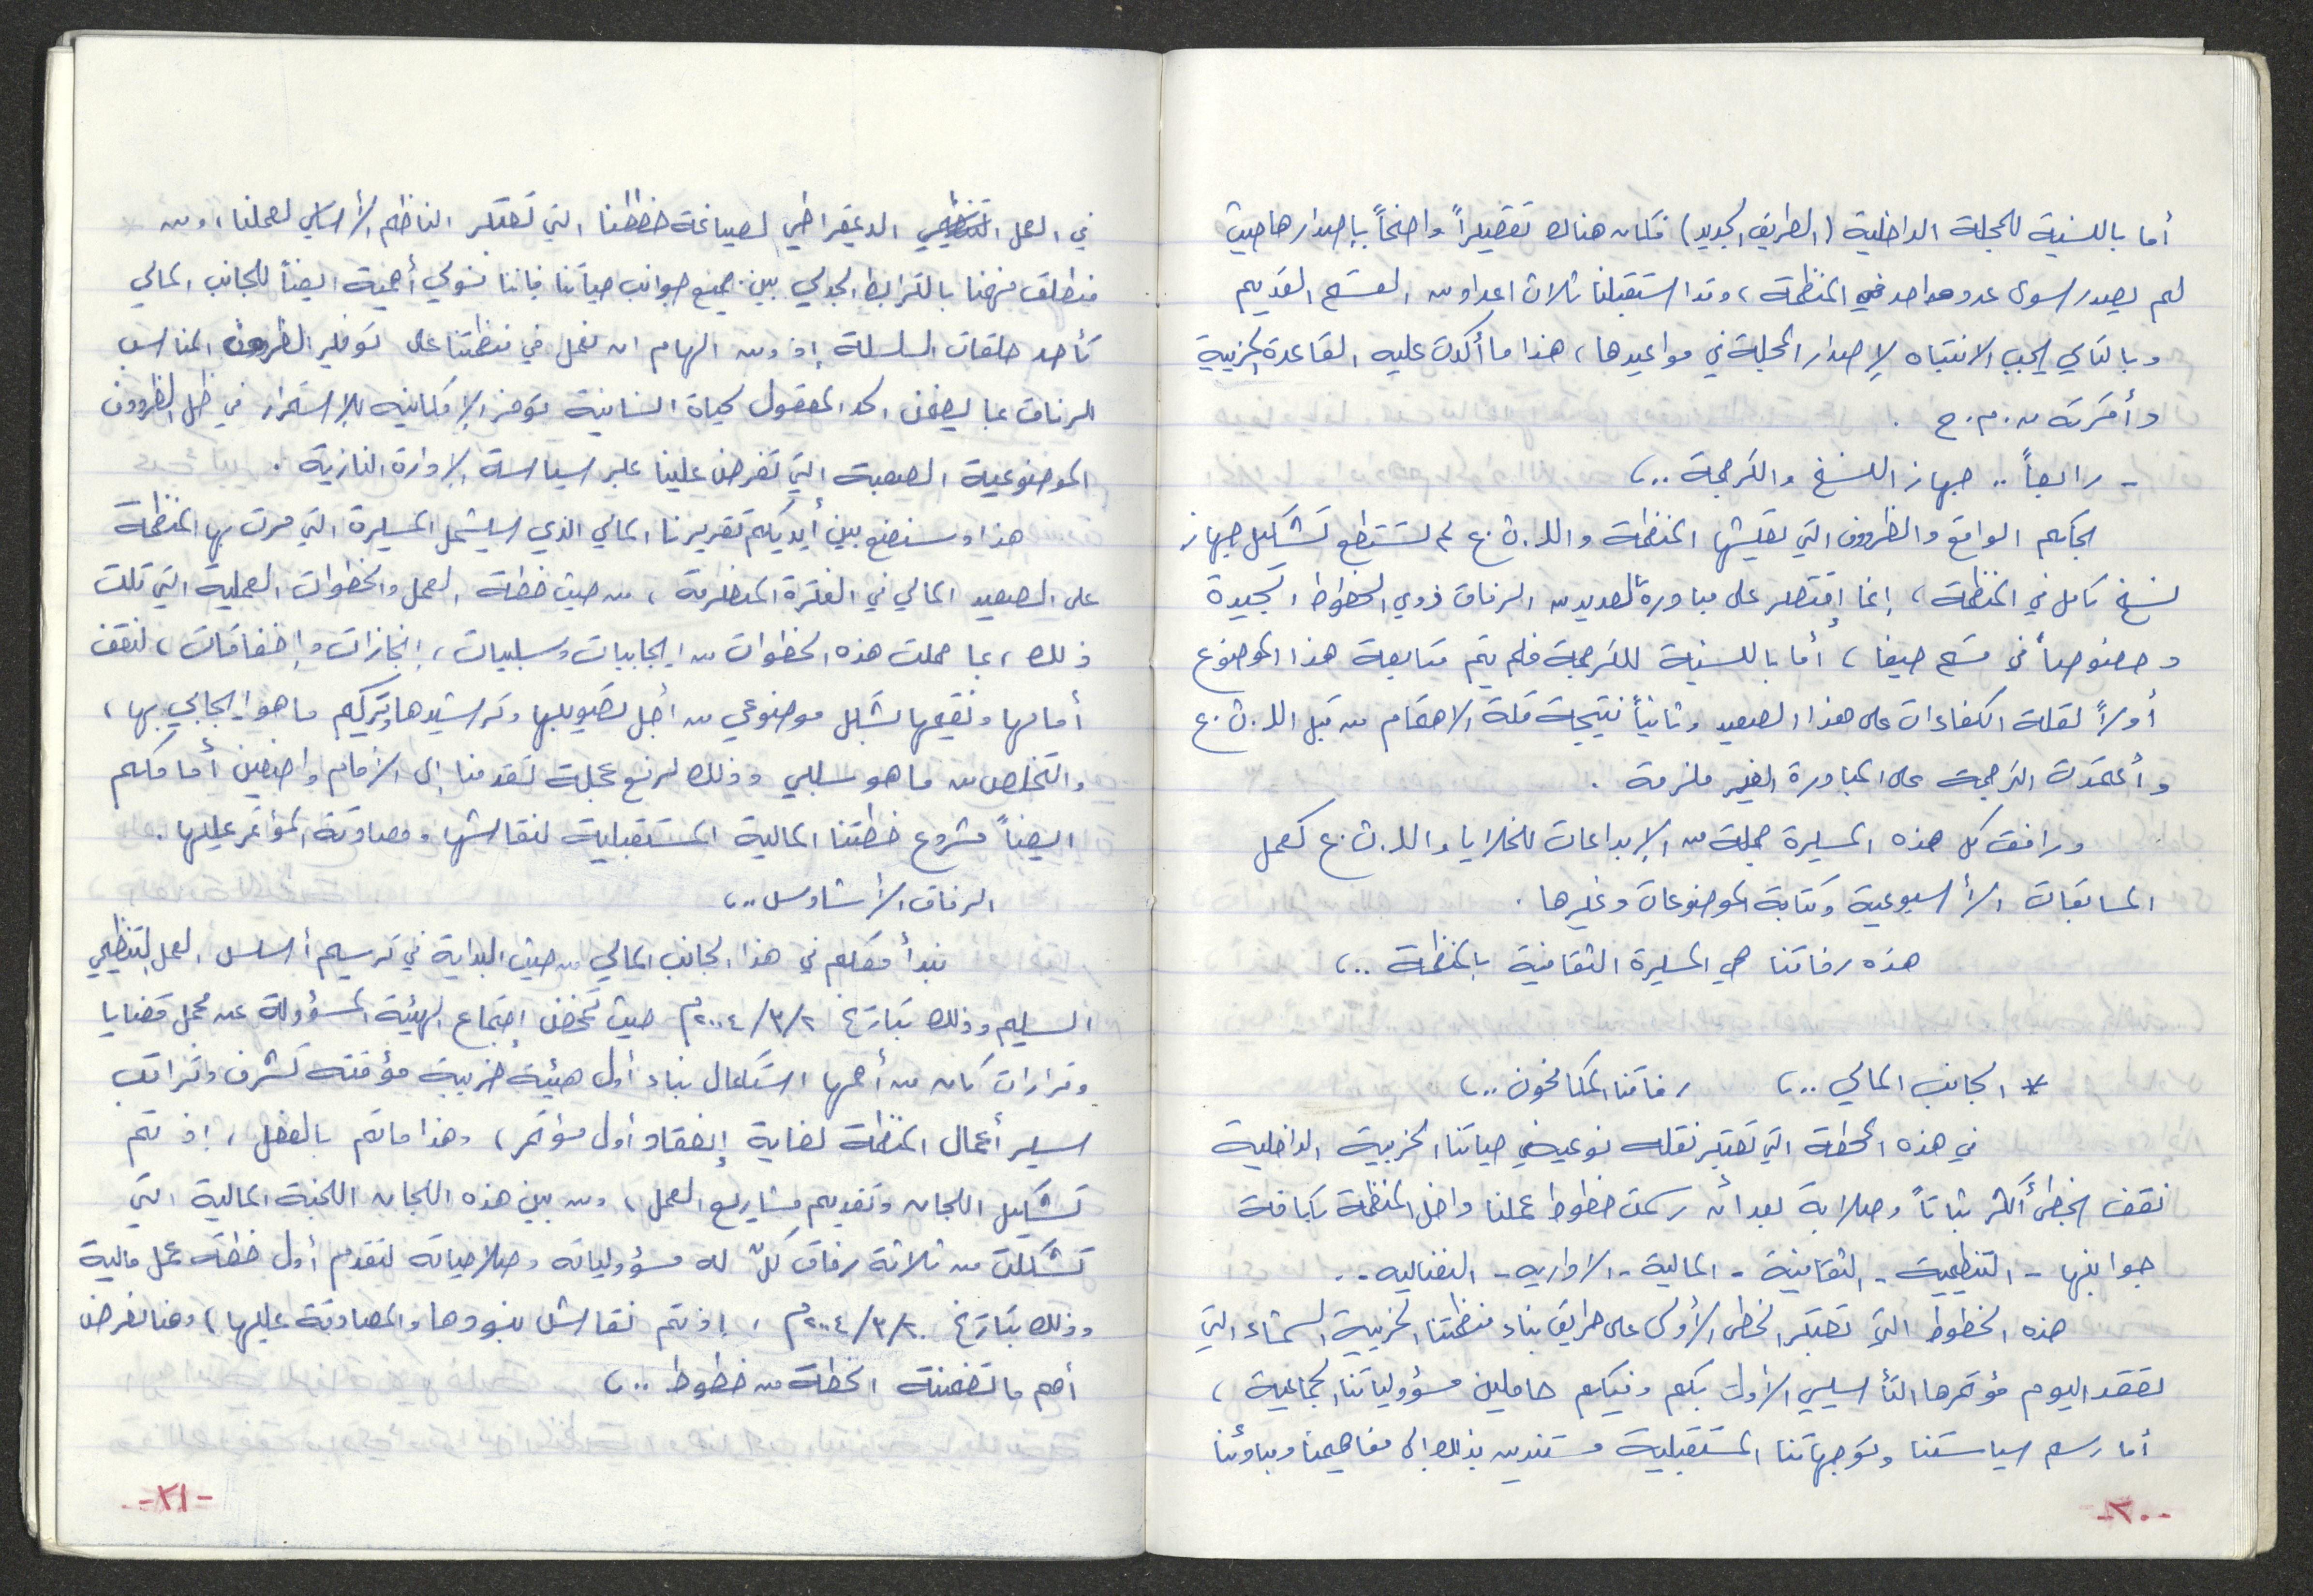 أما بالنسبة للمجلة الداخلية (الطريق الجديد) فكان هناك تقصيراً واضحاً بإصدارها حيث
لم يصدر سوى عدد واحد في المنظمة، وقد استقبلنا ثلاث اعداد من القسم القديم
وبالتالي يجب الانتباه لإصدار المجلة في مواعيدها، هذا ما أكدت عليه القاعدة الحزبية
وأقرته م.م.ح .
- رابعاً .. جهاز النسخ والترجمة ..،
بحكم الواقع والظروف التي تعيشها المنظمة والل.ث.ع لم تستطع تشكيل جهاز
نسخ كامل في المنظمة، إنما إقتصر على مبادرة العديد من الرفاق ذوي الخطوط الجيدة
وخصوصاً في قسم حيفا، أما بالنسبة للترجمة فلم يتم متابعة هذا الموضوع
أولاً لقلة الكفاءات على هذا الصعيد وثانياً نتيجة قلة الاهتمام من قبل الل.ث.ع
وأعتمدت الترجمة على المبادرة الغير ملزمة .
ورافق كل هذه المسيرة جملة من الإبداعات للخلايا والل.ث.ع كعمل
المسابقات الأسبوعية وكتابة الموضوعات وغيرها .
هذه رفاقنا هي المسيرة الثقافية بالمنظمة ..،
* الجانب المالي ..، رفاقنا المكافحون ..،
في هذه المحطة التي تعتبر نقله نوعية في حياتنا الحزبية الداخلية
نقف بخطى أكثر ثباتاً وصلابة بعد أن رسمت خطوط عملنا داخل المنظمة بكافة
جوانبها - التنظيمية - الثقافية - المالية - الاداريه - النضاليه ..
هذه الخطوط التي تعتبر الخطى الأولى على طريق بناء منظمتنا الحزبية الشماء التي
تعقد اليوم مؤتمرها التأسيسي الأول بكم وفيكم حاملين مسؤولياتنا الجماعية ،
أما رسم سياستنا وتوجهاتنا المستقبلية مستندين بذلك إلى مفاهيمنا ومبادئنا
-٢٠-
في العمل التنظيمي الديمقراطي لصياغة خططنا التي تعتبر الناظم الأساسي لعملنا، ومن
منطلق فهمنا بالترابط الجدلي بين جميع جوانب حياتنا فإننا نولي أهمية ايضاً للجانب المالي
كأحد حلقات السلسلة إذ ومن الهام ان نعمل في منظمتنا على توفير الظروف المناسب
للرفاق بما يضمن الحد المعقول لحياة انسانية توفر الإمكانيه للإستمرار في ظل الظروف
الموضوعية الصعبة التي تفرض علينا عبر سياسة الإدارة النازية .
هذا وسنضع بين أيديكم تقريرنا المالي الذي سيشمل المسيرة التي مرت بها المنظمة
على الصعيد المالي في الفترة المنظرمة ، من حيث خطة العمل والخطوات العملية التي تلت
ذلك، بما حملت هذه الخطوات من ايجابيات وسلبيات، إنجازات وإخفاقات، لنقف
أمامها ونقيمها بشكل موضوعي من أجل تصويبها وترشيدها وتركيم ما هو ايجابي بها ،
والتخلص من ما هو سلبي وذلك لرفع عجلة تقدمنا إلى الأمام واضعين أمامكم
ايضاً مشروع خطتنا المالية المستقبلية لنقاشها ومصادقة المؤتمر عليها .
الرفاق الأشاوس ..،
نبدأ معكم في هذا الجانب المالي من حيث البداية في ترسيم أسس العمل التنظيمي
السليم وذلك بتاريخ ٢/٣/٢٠٠٤م حيث تمخض إجتماع الهيئة المسؤولة عن مجمل قضايا
وقرارات كان من أهمها استكمال بناء أول هيئة حزبية مؤقته تشرف وتراقب
سير أعمال المنظمة لغاية إنعقاد أول مؤتمر، وهذا ما تم بالفعل ، إذ تم
تشكيل اللجان وتقديم مشاريع العمل، ومن بين هذه اللجان اللجنة المالية التي
تشكلت من ثلاثة رفاق كلٌ له مسؤولياته وصلاحياته لتقدم أول خطة عمل مالية
وذلك بتاريخ ٢٠/٣/٢٠٠٤م ، إذ تم نقاش بنودها والمصادقة عليها، وهنا نعرض
أهم ما تضمنته الخطة من خطوط ..،
-٢١-